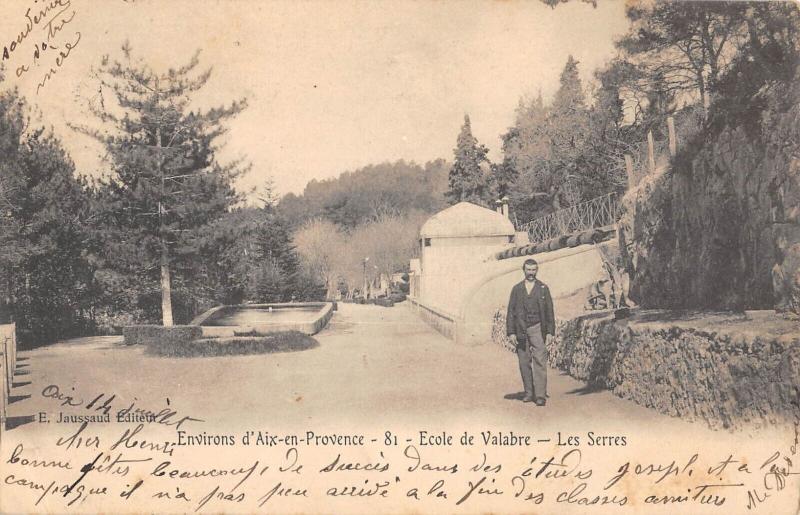 souvenir
a votre
mère
E. Jaussaud Editeur
Aix 14 juillet
Environs d'Aix-en-Provence - 81 - Ecole de Valabre — Les Serres
Mer Henri
bonne fêtes beaucoup De Succès Dans Des études joseph et a la
campagne il n'a pas peu arrivé a la fin des classes amitiers